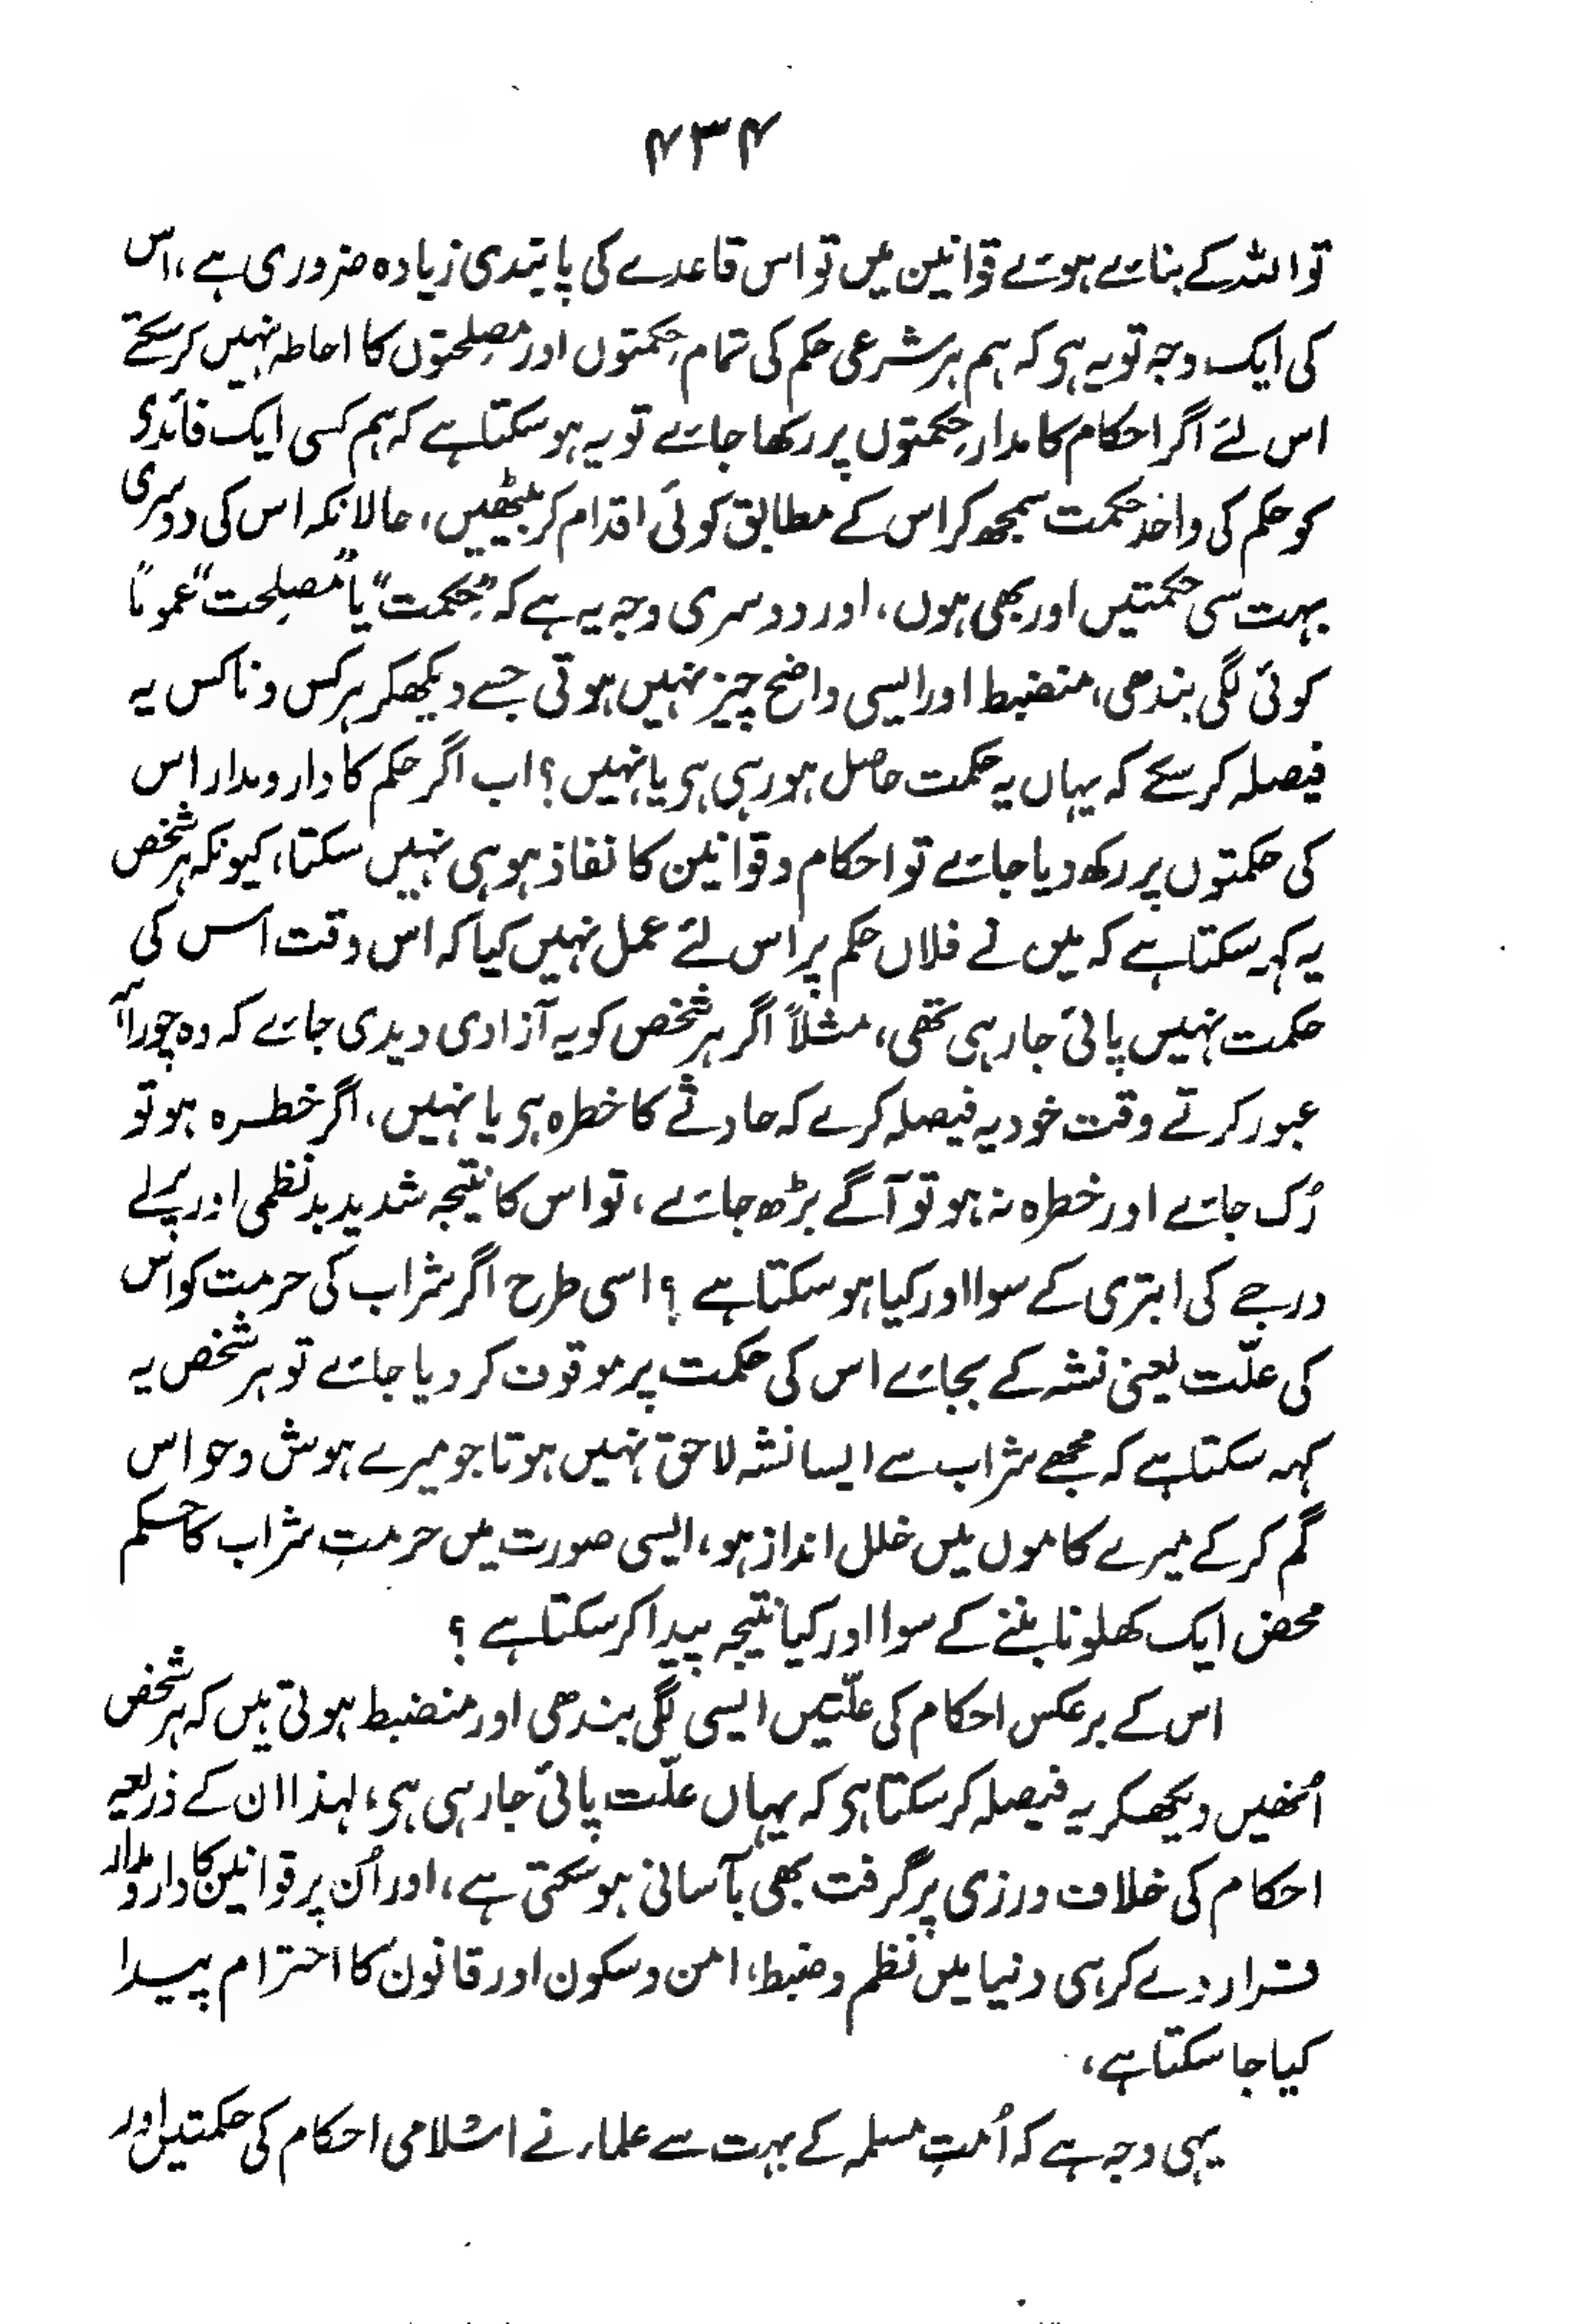 ۴۳۴
تو اللہ کے بنائے ہوئے قوانین میں تو اس قاعدے کی پابندی زیادہ ضروری ہے، اس
کی ایک وجہ تو یہ ہی کہ ہم ہر شرعی حکم کی تمام حِکمتوں اور مصِلحتوں کا احاطہ نہیں کرسکتے
اس لئے اگر احکام کا مدار حِکمتوں پر رکھا جائے تو یہ ہوسکتا ہے کہ ہم کسی ایک فائدی
کو حکم کی واحد حکمت سمجھ کر اس کے مطابق کوئی اقدام کر بیٹھیں، حالانکہ اس کی دوسری
بہت سی حکمتیں اور بھی ہوں، اور دوسری وجہ یہ ہے کہ ”حِکمت“ یا ”مصلِحت“ عمومًا
کوئی لگی بندھی، منضبط اور ایسی واضح چیز نہیں ہوتی جسے دیکھکر ہر کس و ناکس یہ
فیصلہ کرسکے کہ یہاں یہ حکمت حاصل ہورہی ہی یا نہیں؟ اب اگر حکم کا دار و مدار اس
کی حکمتوں پر رکھ دیا جائے تو احکام و قوانین کا نفاذ ہو ہی نہیں سکتا، کیونکہ ہر شخص
یہ کہہ سکتا ہے کہ میں نے فلاں حکم پر اس لئے عمل نہیں کیا کہ اس وقت اُس کی
حکمت نہیں پائی جارہی تھی، مثلاً اگر ہر شخص کو یہ آزادی دیدی جائے کہ وہ چوراہے
عبور کرتے وقت خود یہ فیصلہ کرے کہ حادثے کا خطرہ ہی یا نہیں، اگر خطرہ ہو تو
رُک جائے اور خطرہ نہ ہو تو آگے بڑھ جائے، تو اس کا نتیجہ شدید بدنظمی اور پرلے
درجے کی ابتری کے سوا اور کیا ہوسکتا ہے؟ اسی طرح اگر شراب کی حرمت کو اس
کی علّت یعنی نشہ کے بجائے اس کی حکمت پر موقوف کر دیا جائے تو ہر شخص یہ
کہہ سکتا ہے کہ مجھے شراب سے ایسا نشہ لاحق نہیں ہوتا جو میرے ہوش و حواس
گم کرکے میرے کاموں میں خلل انداز ہو، ایسی صورت میں حرمتِ شراب کا حکم
محض ایک کھلونا بننے کے سوا اور کیا نتیجہ پیدا کرسکتا ہے؟
اس کے برعکس احکام کی علّتیں ایسی لگی بندھی اور منضبط ہوتی ہیں کہ ہر شخص
اُنھیں دیکھکر یہ فیصلہ کرسکتا ہی کہ یہاں علّت پائی جارہی ہی، لہذا ان کے ذریعہ
احکام کی خلاف ورزی پر گرفت بھی بآسانی ہوسکتی ہے، اور اُن پر قوانین کا دار و مدار
قرار دے کر ہی دنیا میں نظم و ضبط، امن و سکون اور قانون کا احترام پیدا
کیا جاسکتا ہے،
یہی وجہ ہے کہ اُمتِ مسلمہ کے بہت سے علماء نے اسلامی احکام کی حکمتیں اور